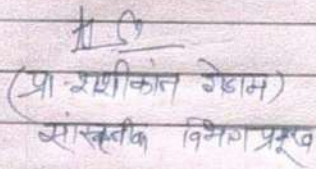 (प्रा. शशीकांत गेडाम)
सांस्कृतीक विभाग प्रमूख